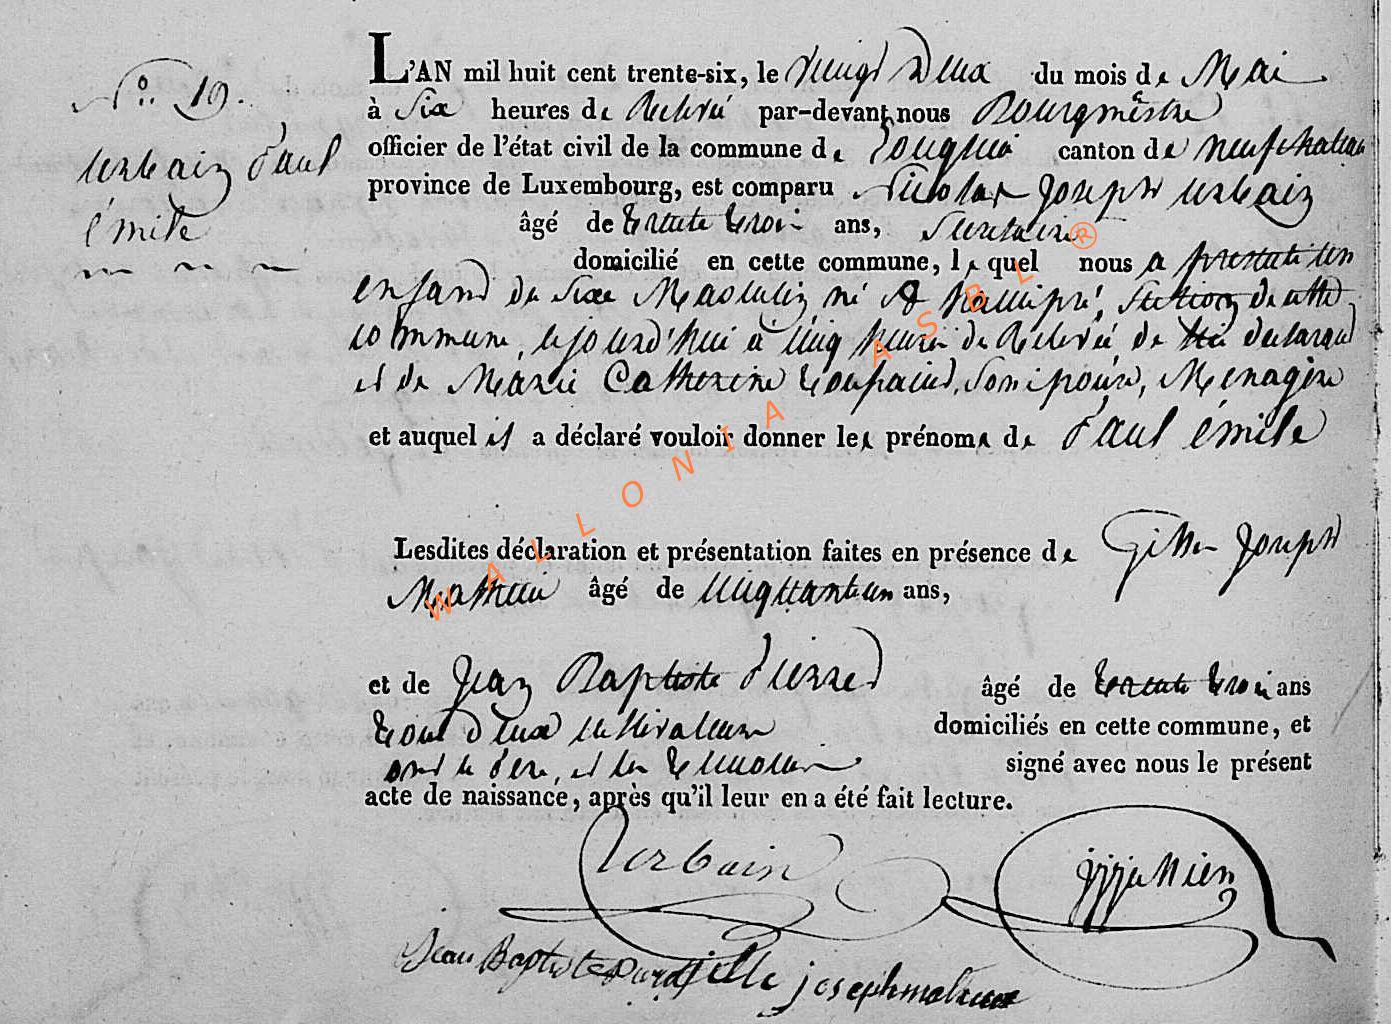 N.º 19.
Urbain Paul
émile
L'AN mil huit cent trente-six, le vingt Deux du mois de Mai
à Six heures de Relevée par-devant nous Bourgmestre
officier de l'état civil de la commune de canton de neufchateau
province de Luxembourg, est comparu Nicolas Joseph urbain
âgé de trente trois ans, Secretaire
domicilié en cette commune, lequel nous a presenté un
enfant de sexe Masculin né à hamipré, Section de cette
commune, cejourd'hui à cinq heures de Relevée de lui declarant
et de Marie Catherine Son épouse, Menagère
et auquel il a déclaré vouloir donner les prénoms de Paul émile
Lesdites déclaration et présentation faites en présence de Gille Joseph
Mathieu âgé de cinquante un ans,
et de Jean Baptiste Pierred âgé de trente trois ans
tous deux cultivateurs domiciliés en cette commune, et
ont le Père, et les temoins signé avec nous le présent
acte de naissance, après qu'il leur en a été fait lecture.
Urbain
Jean Baptiste gille joseph mathieu
WALLONIA ASBL ®